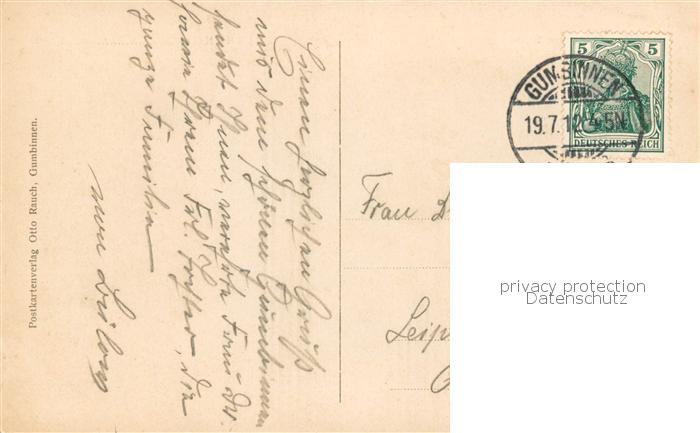 Einen herzlichen Gruß
aus dem schönen Gumbinnen
sendet Ihnen, verehrte Frau Dr.
sowie Ihrem Frl. Tochter, die
ganze Familie
von
Postkartenverlag Otto Rauch, Gumbinnen.
5 5
DEUTSCHES REICH
GUMBINNEN
19.7.12 4-5N
Frau D
Leip
privacy protection
Datenschutz